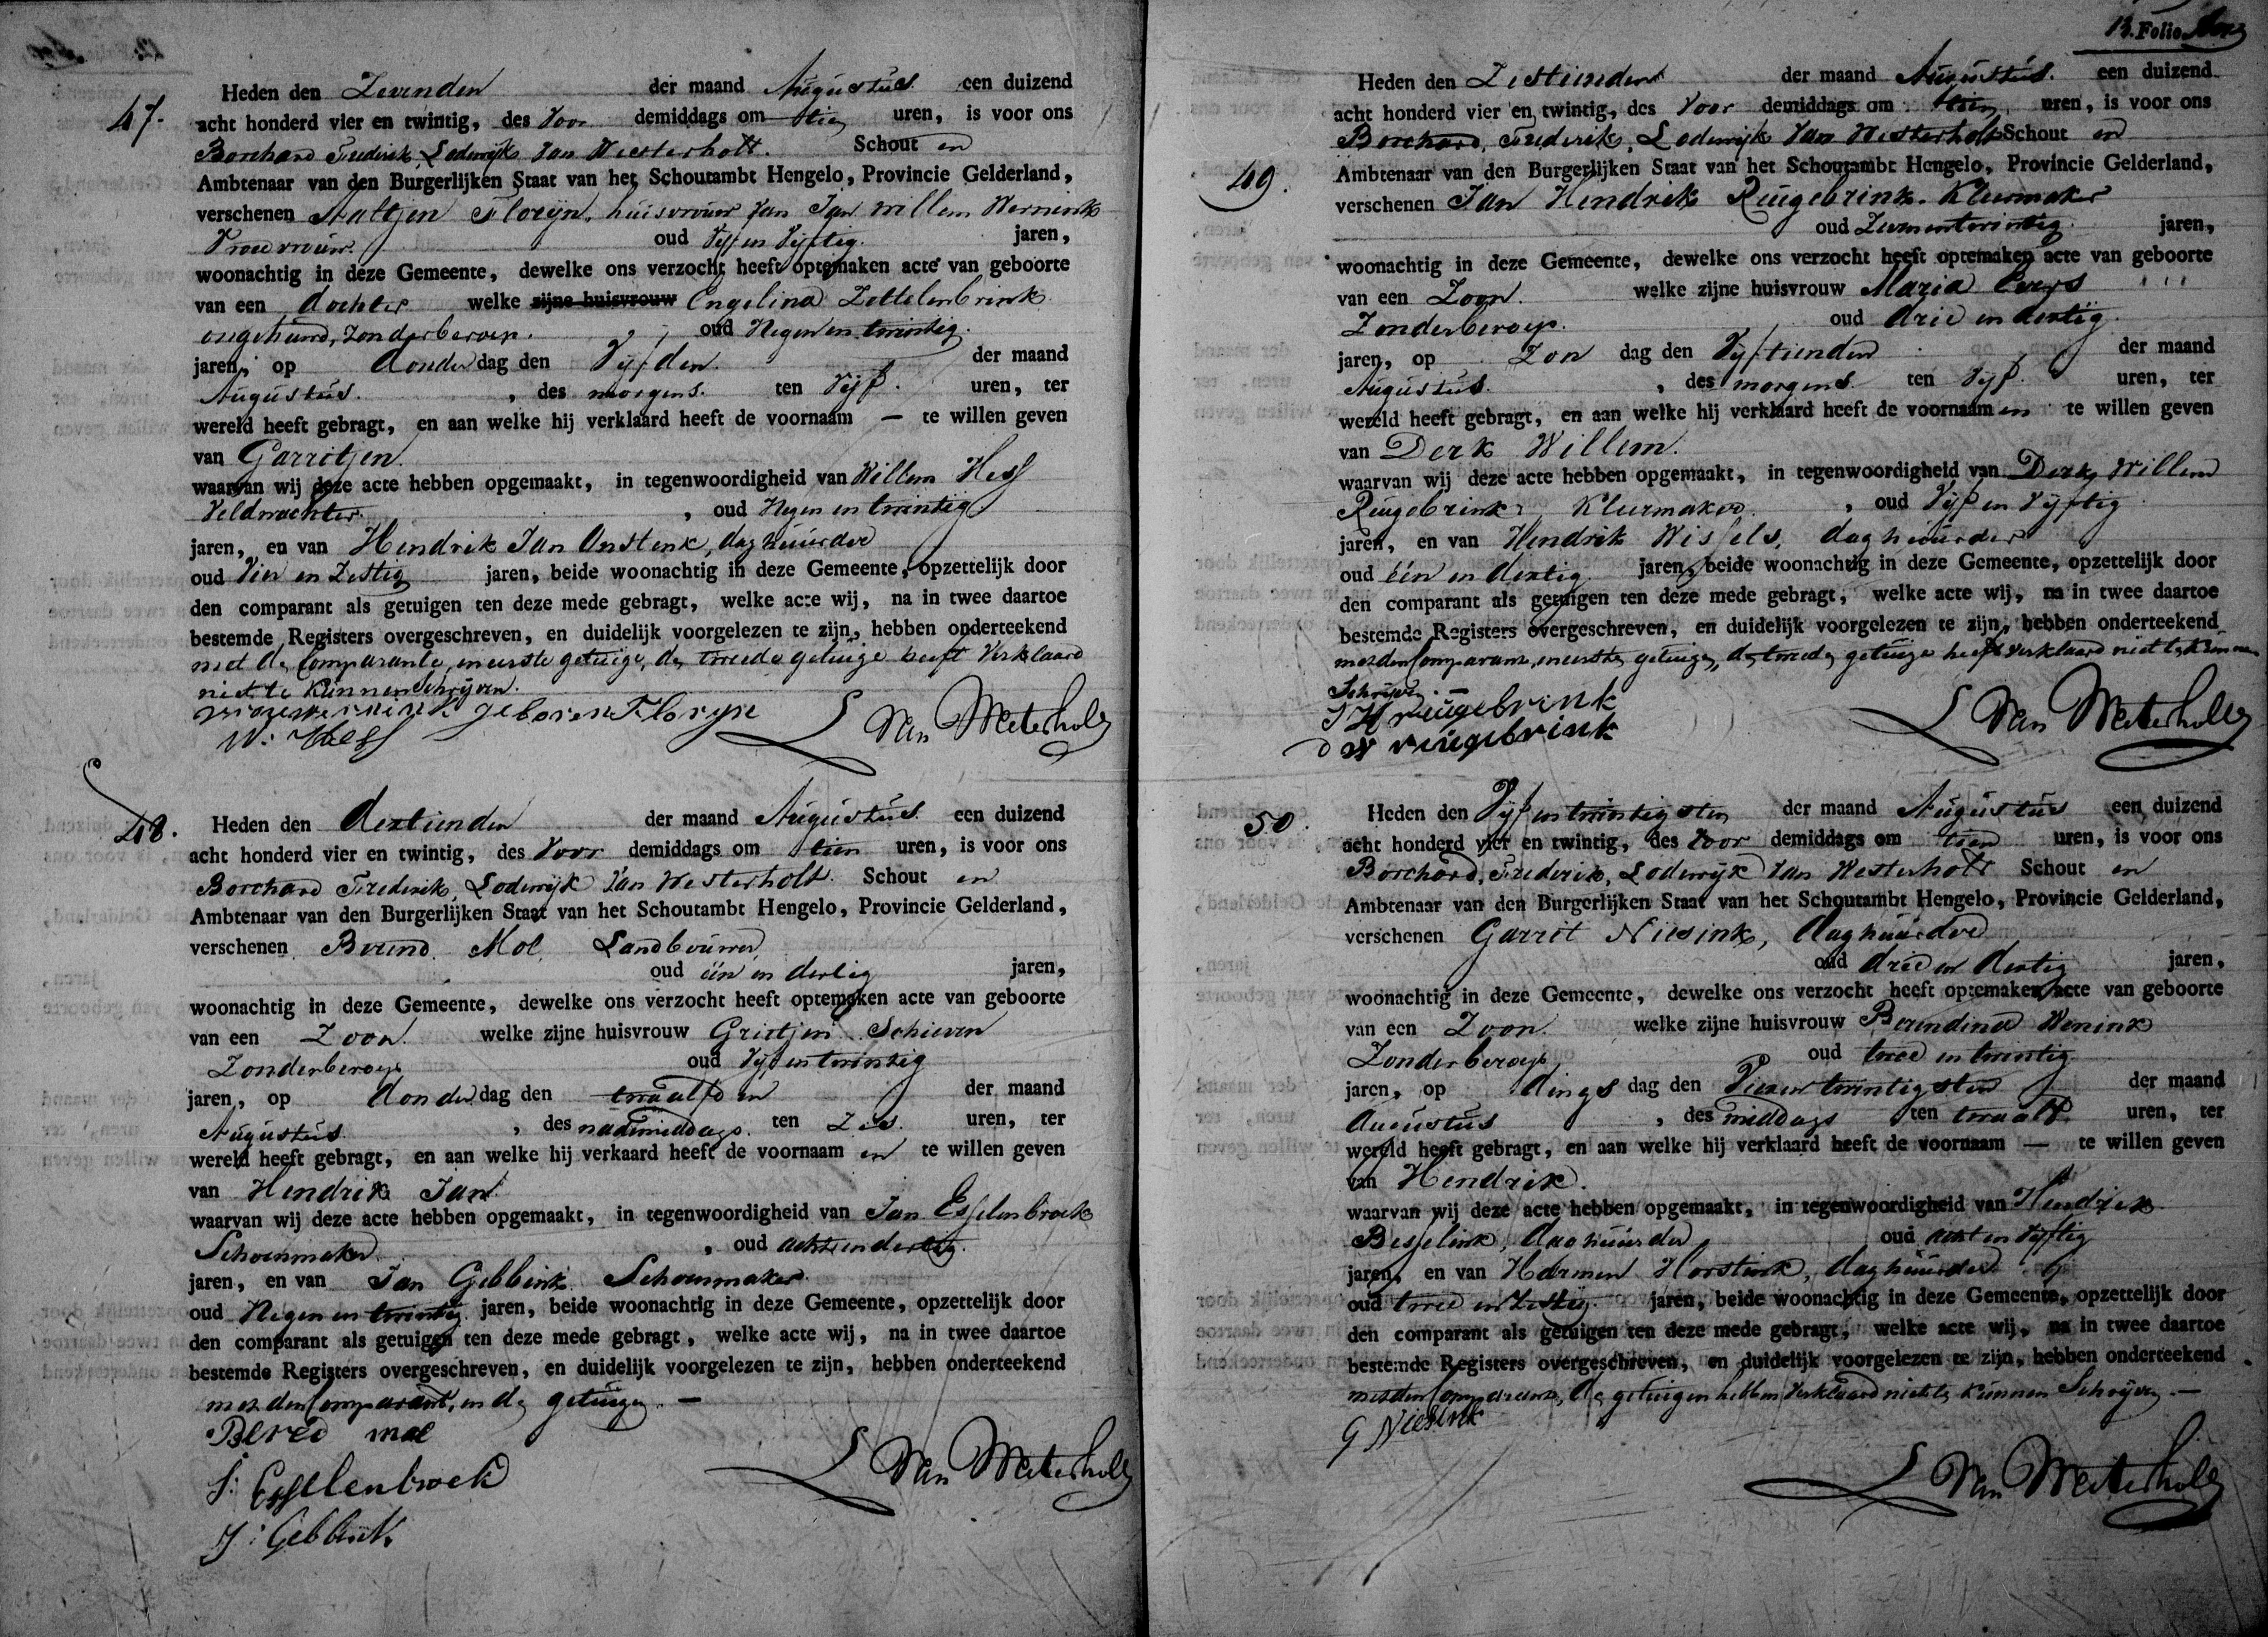 47.
Heden den Zevenden der maand Augustus een duizend
acht honderd vier en twintig, des Voor demiddags om tien uren, is voor ons
Borchard Frederik Lodewijk Van Westerholt. Schout en
Ambtenaar van den Burgerlijken Staat van het Schoutambt Hengelo, Provincie Gelderland,
verschenen Aaltjen Florijn, huisvrouw van Jan Willem Wernink
Vroedvrouw oud Vijf en Vijftig jaren,
woonachtig in deze Gemeente, dewelke ons verzocht heeft optemaken acte van geboorte
van een dochter welke zijne huisvrouw Engelina Zettelenbrink
ongehuwd, zonder beroep. oud Negen en twintig.
jaren, op donder dag den Vijfden der maand
Augustus. , des morgens. ten Vijf. uren, ter
wereld heeft gebragt, en aan welke hij verklaard heeft de voornaam — te willen geven
van Garritjen.
waarvan wij deze acte hebben opgemaakt, in tegenwoordigheid van Willem Hess
Veldwachter , oud Negen en twintig
jaren, en van Hendrik Jan Onstenk, daghuurder
oud Vier en Zestig jaren, beide woonachtig in deze Gemeente, opzettelijk door
den comparant als getuigen ten deze mede gebragt, welke acte wij, na in twee daartoe
bestemde Registers overgeschreven, en duidelijk voorgelezen te zijn, hebben onderteekend
met de Comparante, en eerste getuige, de tweede getuige heeft Verklaard
niet te kunnen Schrijven.
geboren Floryn
W: Hess
Van Westerholt
48.
Heden den dertienden der maand Augustus een duizend
acht honderd vier en twintig, des Voor demiddags om tien uren, is voor ons
Borchard Frederik Lodewijk Van Westerholt. Schout en
Ambtenaar van den Burgerlijken Staat van het Schoutambt Hengelo, Provincie Gelderland,
verschenen Berend Mol Landbouwer
oud één en dertig jaren,
woonachtig in deze Gemeente, dewelke ons verzocht heeft optemaken acte van geboorte
van een Zoon. welke zijne huisvrouw Grietjen Schieven
Zonder beroep oud Vijf en twintig
jaren, op donder dag den twaalfden der maand
Augustus , des nademiddags. ten Zes. uren, ter
wereld heeft gebragt, en aan welke hij verkaard heeft de voornaam en te willen geven
van Hendrik Jan
waarvan wij deze acte hebben opgemaakt, in tegenwoordigheid van Jan Esselenbroek
Schoenmaker , oud acht en dertig.
jaren, en van Jan Gebbink Schoenmaker
oud Negen en twintig jaren, beide woonachtig in deze Gemeente, opzettelijk door
den comparant als getuigen ten deze mede gebragt, welke acte wij, na in twee daartoe
bestemde Registers overgeschreven, en duidelijk voorgelezen te zijn, hebben onderteekend
met den Comparant, en de getuigen. —
Berend mol
J: Esselenbroek
J: Gebbink
Van Westerholt
13. Folio
49.
Heden den Zestienden der maand Augustus. een duizend
acht honderd vier en twintig, des Voor demiddags om tien uren, is voor ons
Borchard, Frederik, Lodewijk Van Westerholt Schout en
Ambtenaar van den Burgerlijken Staat van het Schoutambt Hengelo, Provincie Gelderland,
verschenen Jan Hendrik Reugebrink. Kleermaker
oud Zeven en twintig jaren,
woonachtig in deze Gemeente, dewelke ons verzocht heeft optemaken acte van geboorte
van een Zoon. welke zijne huisvrouw Maria Evers
Zonder beroep. oud drie en dertig.
jaren, op Zon dag den Vijftienden der maand
Augustus. , des morgens ten Vijf. uren, ter
wereld heeft gebragt, en aan welke hij verklaard heeft de voornaam en te willen geven
van Derk Willem.
waarvan wij deze acte hebben opgemaakt, in tegenwoordigheid van Derk Willem
Reugebrink, Kleermaker , oud Vijf en Vijftig
jaren, en van Hendrik Wissels, daghuurder
oud één en dertig jaren, beide woonachtig in deze Gemeente, opzettelijk door
den comparant als getuigen ten deze mede gebragt, welke acte wij, na in twee daartoe
bestemde Registers overgeschreven, en duidelijk voorgelezen te zijn, hebben onderteekend
met den Comparant, en eerste getuige, de tweede getuige heeft verklaard niet te kunnen
Schrijven. —
J H reugebrink
D W reugebrink
Van Westerholt
50.
Heden den Vijf en twintigsten der maand Augustus een duizend
acht honderd vier en twintig, des Voor demiddags om tien uren, is voor ons
Borchard, Frederik, Lodewijk Van Westerholt Schout en
Ambtenaar van den Burgerlijken Staat van het Schoutambt Hengelo, Provincie Gelderland,
verschenen Garrit Niesink, daghuurder
oud drie en dertig jaren,
woonachtig in deze Gemeente, dewelke ons verzocht heeft optemaken acte van geboorte
van een Zoon. welke zijne huisvrouw Berendina Wenink
Zonder beroep oud twee en twintig
jaren, op dings dag den Vier en twintigsten der maand
Augustus , des middags ten twaalf uren, ter
wereld heeft gebragt, en aan welke hij verklaard heeft de voornaam — te willen geven
van Hendrik.
waarvan wij deze acte hebben opgemaakt, in tegenwoordigheid van Hendrik
Besselink, daghuurder oud acht en vijftig
jaren, en van Harmen Horstink, daghuurder
oud twee en Zestig. jaren, beide woonachtig in deze Gemeente, opzettelijk door
den comparant als getuigen ten deze mede gebragt, welke acte wij, na in twee daartoe
bestemde Registers overgeschreven, en duidelijk voorgelezen te zijn, hebben onderteekend
met den Comparant, de getuigen hebben Verklaard niet te kunnen Schrijven. —
G Niesink
Van Westerholt